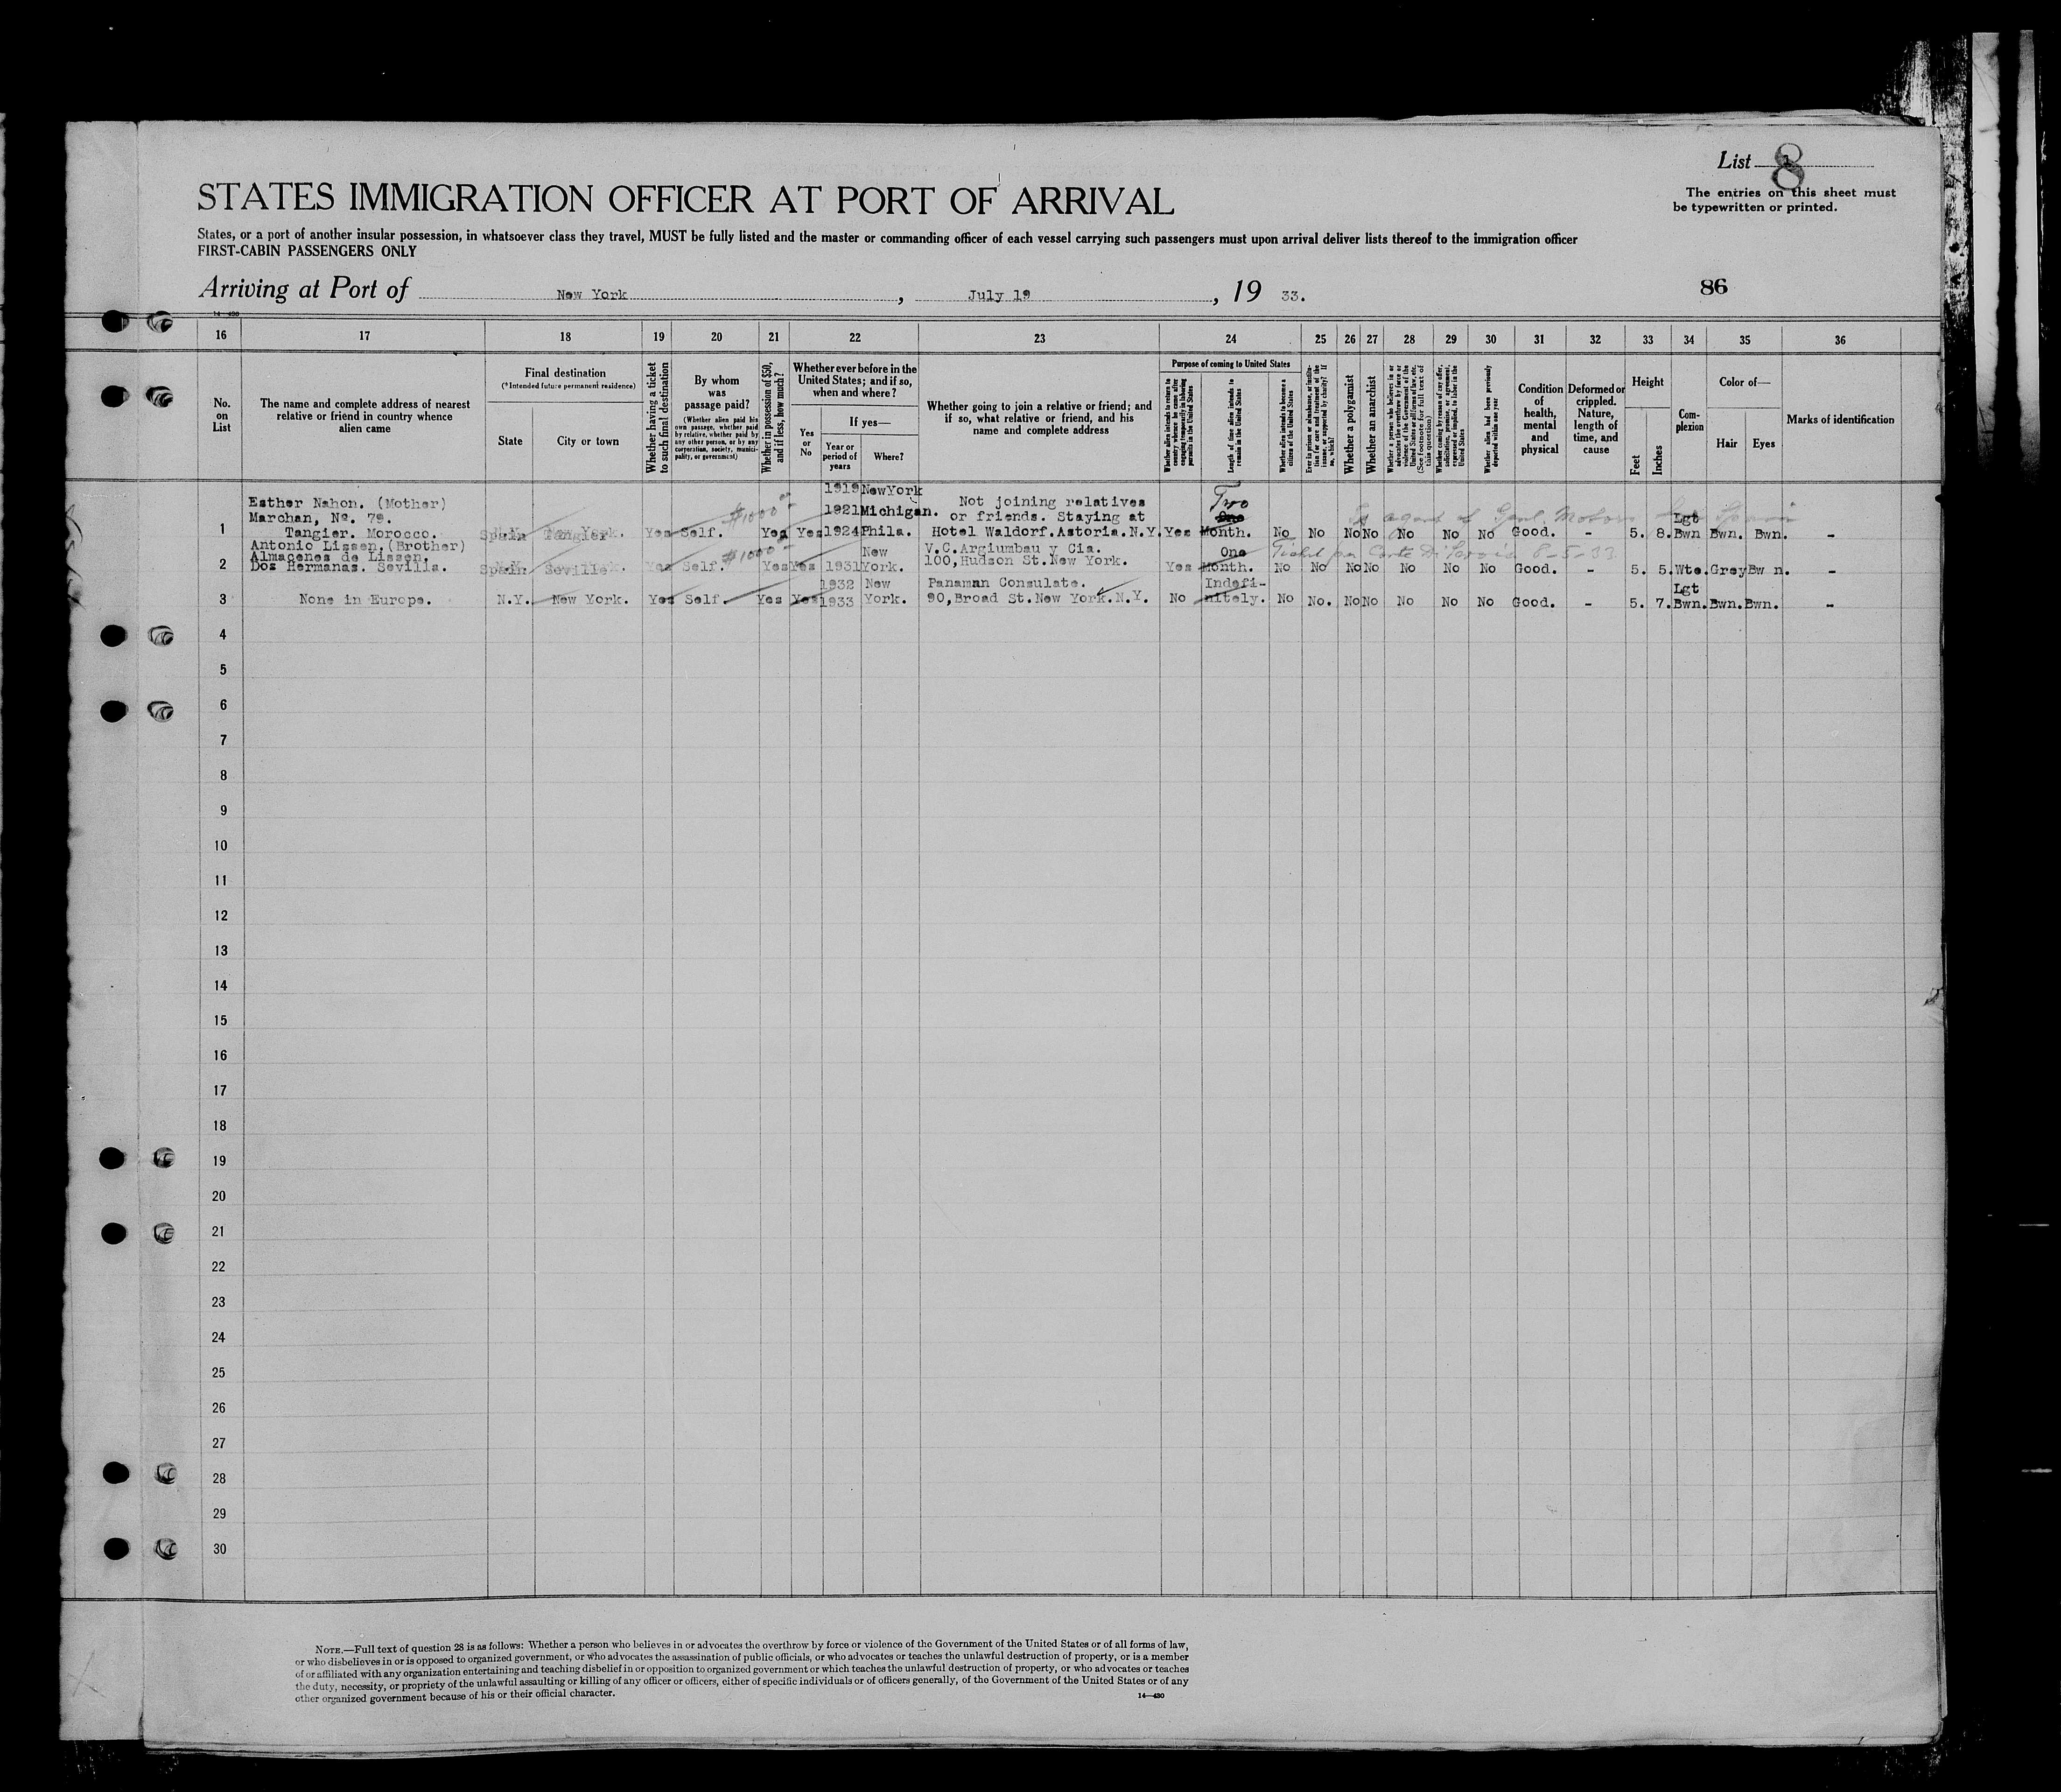 List 8
The entries on this sheet must
be typewritten or printed.
STATES IMMIGRATION OFFICER AT PORT OF ARRIVAL
States, or a port of another insular possession, in whatsoever class they travel, MUST be fully listed and the master or commanding officer of each vessel carrying such passengers must upon arrival deliver lists thereof to the immigration officer
FIRST-CABIN PASSENGERS ONLY
Arriving at Port of New York, July 19, 19 33.
86
14—430
16 17 18 19 20 21 22 23 24 25 26 27 28 29 30 31 32 33 34 35 36
No.
on
List
The name and complete address of nearest
relative or friend in country whence
alien came
Final destination
(*Intended future permanent residence)
State
City or town
Whether having a ticket
to such final destination
By whom
was
passage paid?
(Whether alien paid his
own passage, whether paid
by relative, whether paid by
any other person, or by any
corporation, society, munici-
pality, or government)
Whether in possession of $50,
and if less, how much?
Whether ever before in the
United States; and if so,
when and where?
Yes
or
No
If yes—
Year or
period of
years
Where?
Whether going to join a relative or friend; and
if so, what relative or friend, and his
name and complete address
Purpose of coming to United States
Whether alien intends to return to
country whence he came after
engaging temporarily in laboring
pursuits in the United States
Length of time alien intends to
remain in the United States
Whether alien intends to become a
citizen of the United States
Ever in prison or almshouse, or institu-
tion for care and treatment of the
insane, or supported by charity? If
so, which?
Whether a polygamist
Whether an anarchist
Whether a person who believes in or
advocates the overthrow by force or
violence of the Government of the
United States or all forms of law, etc.
(See footnote for full text of
this question)
Whether coming by reason of any offer,
solicitation, promise, or agreement,
expressed or implied, to labor in the
United States
Whether alien had been previously
deported within one year
Condition
of
health,
mental
and
physical
Deformed or
crippled.
Nature,
length of
time, and
cause
Height
Feet
Inches
Com-
plexion
Color of—
Hair
Eyes
Marks of identification
1919 NewYork
Esther Nahon. (Mother) $1000 1921 Michigan. Not joining relatives Two
Marchan, No. 79. or friends. Staying at One Lgt
1 Tangier. Morocco. Spain Tangier. Yes Self. Yes Yes 1924 Phila. Hotel Waldorf.Astoria.N.Y. Yes Month. No No No No No No No Good. - 5. 8. Bwn Bwn. Bwn. -
Antonio Lissen.(Brother)
Almacenes de Lissen. $1000 New V.C.Argiumbau y Cia. One
2 Dos Hermanas. Sevilla. Spain Seville. Yes Self. Yes Yes 1931 York. 100,Hudson St.New York. Yes Month. No No No No No No No Good. - 5. 5. Wte. Grey Bw n. -
1932 New Panaman Consulate. Indefi- Lgt
3 None in Europe. N.Y. New York. Yes Self. Yes Yes 1933 York. 90,Broad St.New York.N.Y. No nitely. No No. No No No No No Good. - 5. 7. Bwn. Bwn. Bwn. -
4
5
6
7
8
9
10
11
12
13
14
15
16
17
18
19
20
21
22
23
24
25
26
27
28
29
30
NOTE.—Full text of question 28 is as follows: Whether a person who believes in or advocates the overthrow by force or violence of the Government of the United States or of all forms of law,
or who disbelieves in or is opposed to organized government, or who advocates the assassination of public officials, or who advocates or teaches the unlawful destruction of property, or is a member
of or affiliated with any organization entertaining and teaching disbelief in or opposition to organized government or which teaches the unlawful destruction of property, or who advocates or teaches
the duty, necessity, or propriety of the unlawful assaulting or killing of any officer or officers, either of specific individuals or of officers generally, of the Government of the United States or of any
other organized government because of his or their official character.
14—430